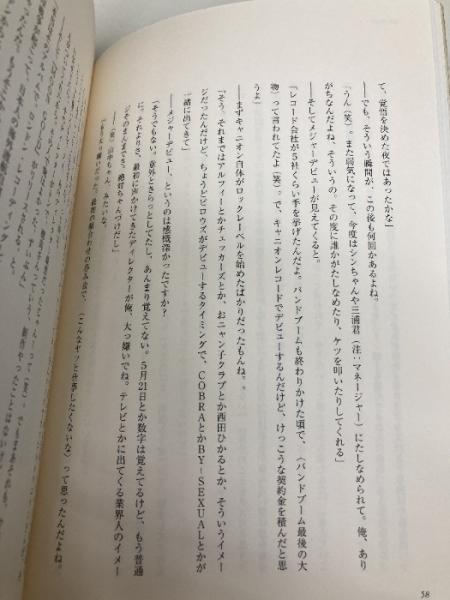 て、覚悟を決めた夜ではあったかな」
――でも、そういう瞬間が、この後も何回かあるよね。
「うん（笑）。また弱気になって、今度はシンちゃんや三浦君（注：マネージャー）にたしなめられて。俺、あり
がちなんだよね、そういうの。その度に誰かがたしなめたり、ケツを叩いたりしてくれる」
――そしてメジャーデビューが見えてくると。
「レコード会社が5社くらい手を挙げたんだよ。バンドブームも終わりかけた頃で、〈バンドブーム最後の大
物〉って言われてたよ（笑）。で、キャニオンレコードでデビューするんだけど、けっこうな契約金を積んだと思
うよ」
――まずキャニオン自体がロックレーベルを始めたばかりだったもんね。
「そう、それまではアルフィーとかチェッカーズとか、おニャン子クラブとか西田ひかるとか、そういうイメー
ジだったんだけど、ちょうどピロウズがデビューするタイミングで、COBRAとかBY-SEXUALとかが
一緒に出てきて」
――メジャーデビュー、というのは感慨深かったですか？
「そうでもない。意外とさらっとしてたし、あんまり覚えてない。5月21日とか数字は覚えてるけど、もう普通
に。それよりさ、最初に声かけてきたディレクターが俺、大っ嫌いでね。テレビとかに出てくる業界人のイメー
ジそのまんまでさ。絶対ちゃんづけだし」
――（笑）山中ちゃん、みたいな。
〈こんなヤツと仕事したくないな〉って思ったんだよね。
58